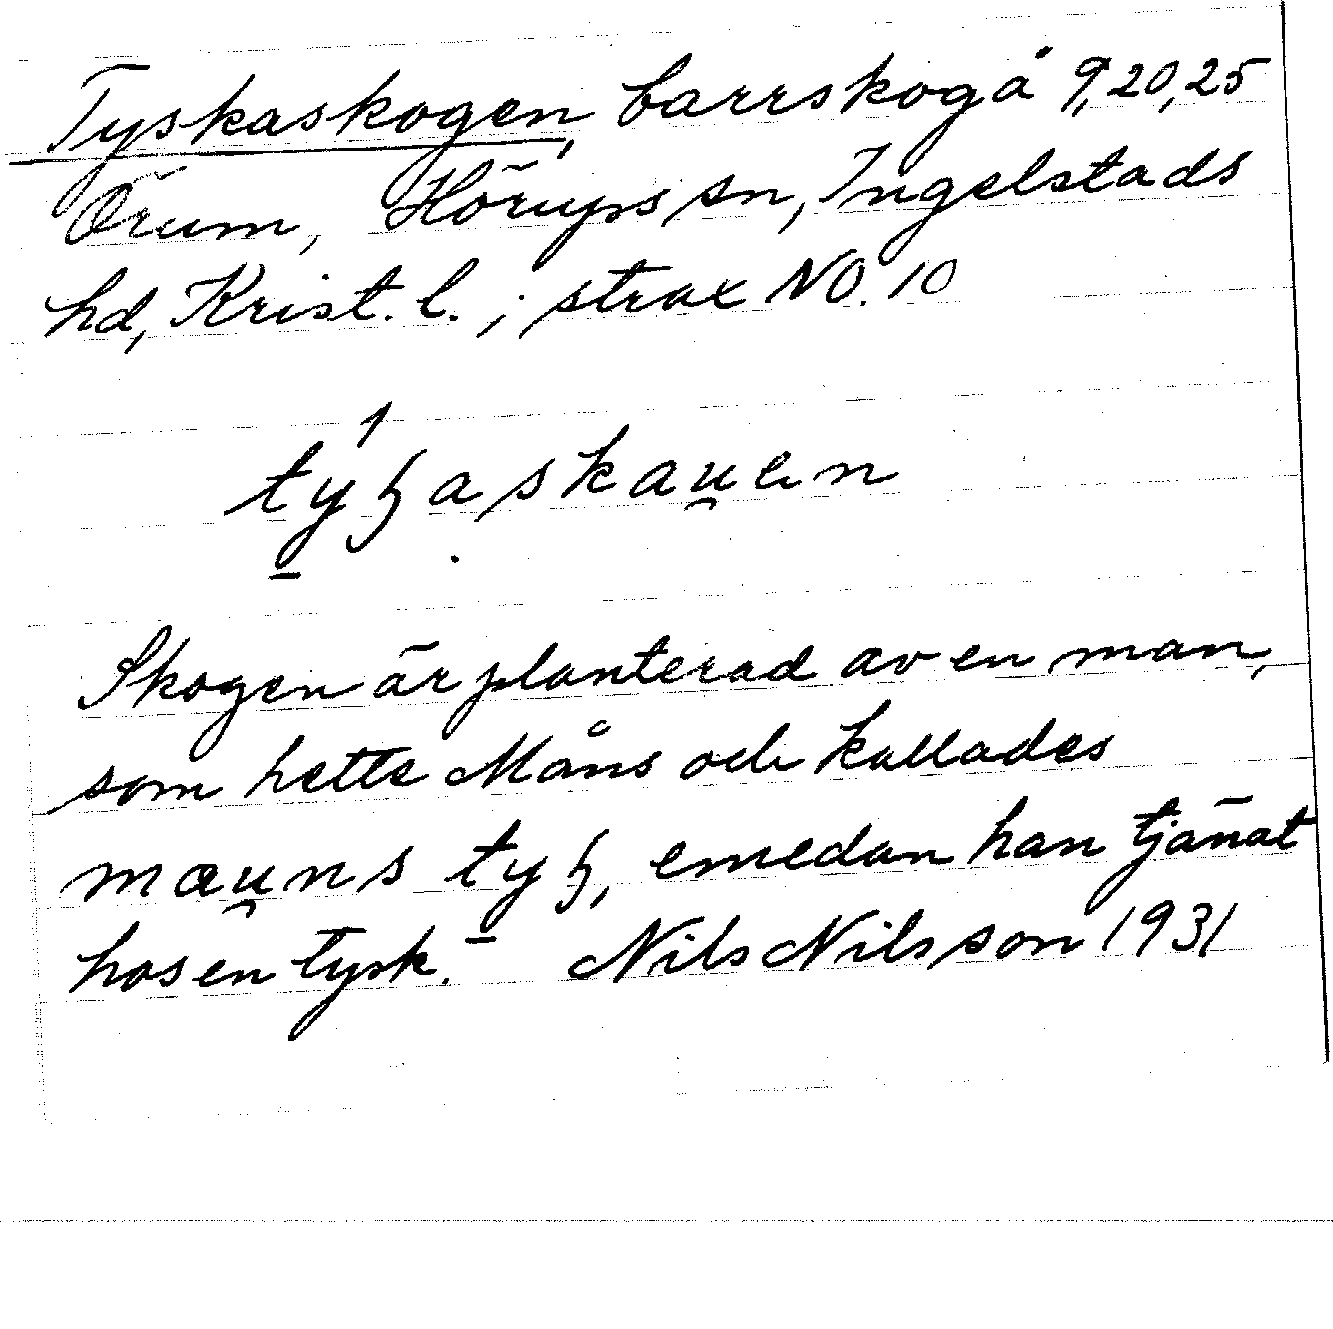 Tyskaskogen, barrskog å 9, 20, 25
Örum, Hörups sn, Ingelstads
hd, Krist. l.; strax NO. 10
Skogen är planterad av en man,
som hette Måns och kallades
emedan han tjänat
hos en tysk. Nils Nilsson 1931